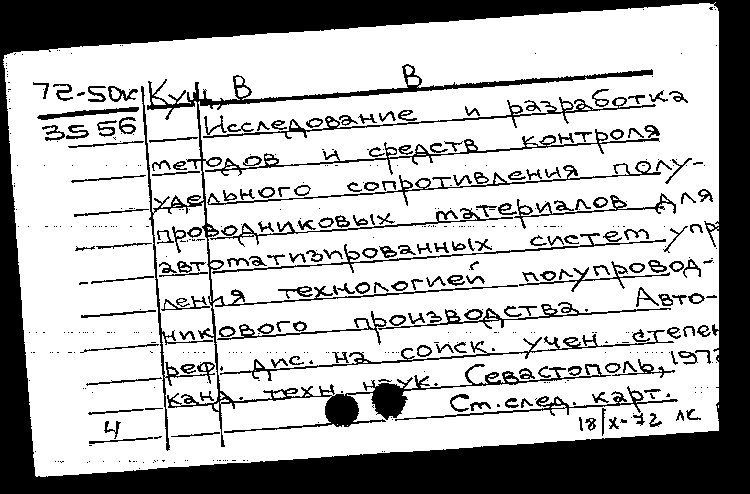 72-50к Кущ, В В
3556 Исследование и разработка
методов и средств контроля
удельного сопротивления полу-
проводниковых материалов для
автоматизированных систем упра
ления технологией полупровод-
никового производства. Авто-
реф. дис. на соиск. учен. степен
канд. техн. наук. Севастополь, 1972
См. след. карт.
4 18/X-72 ЛС